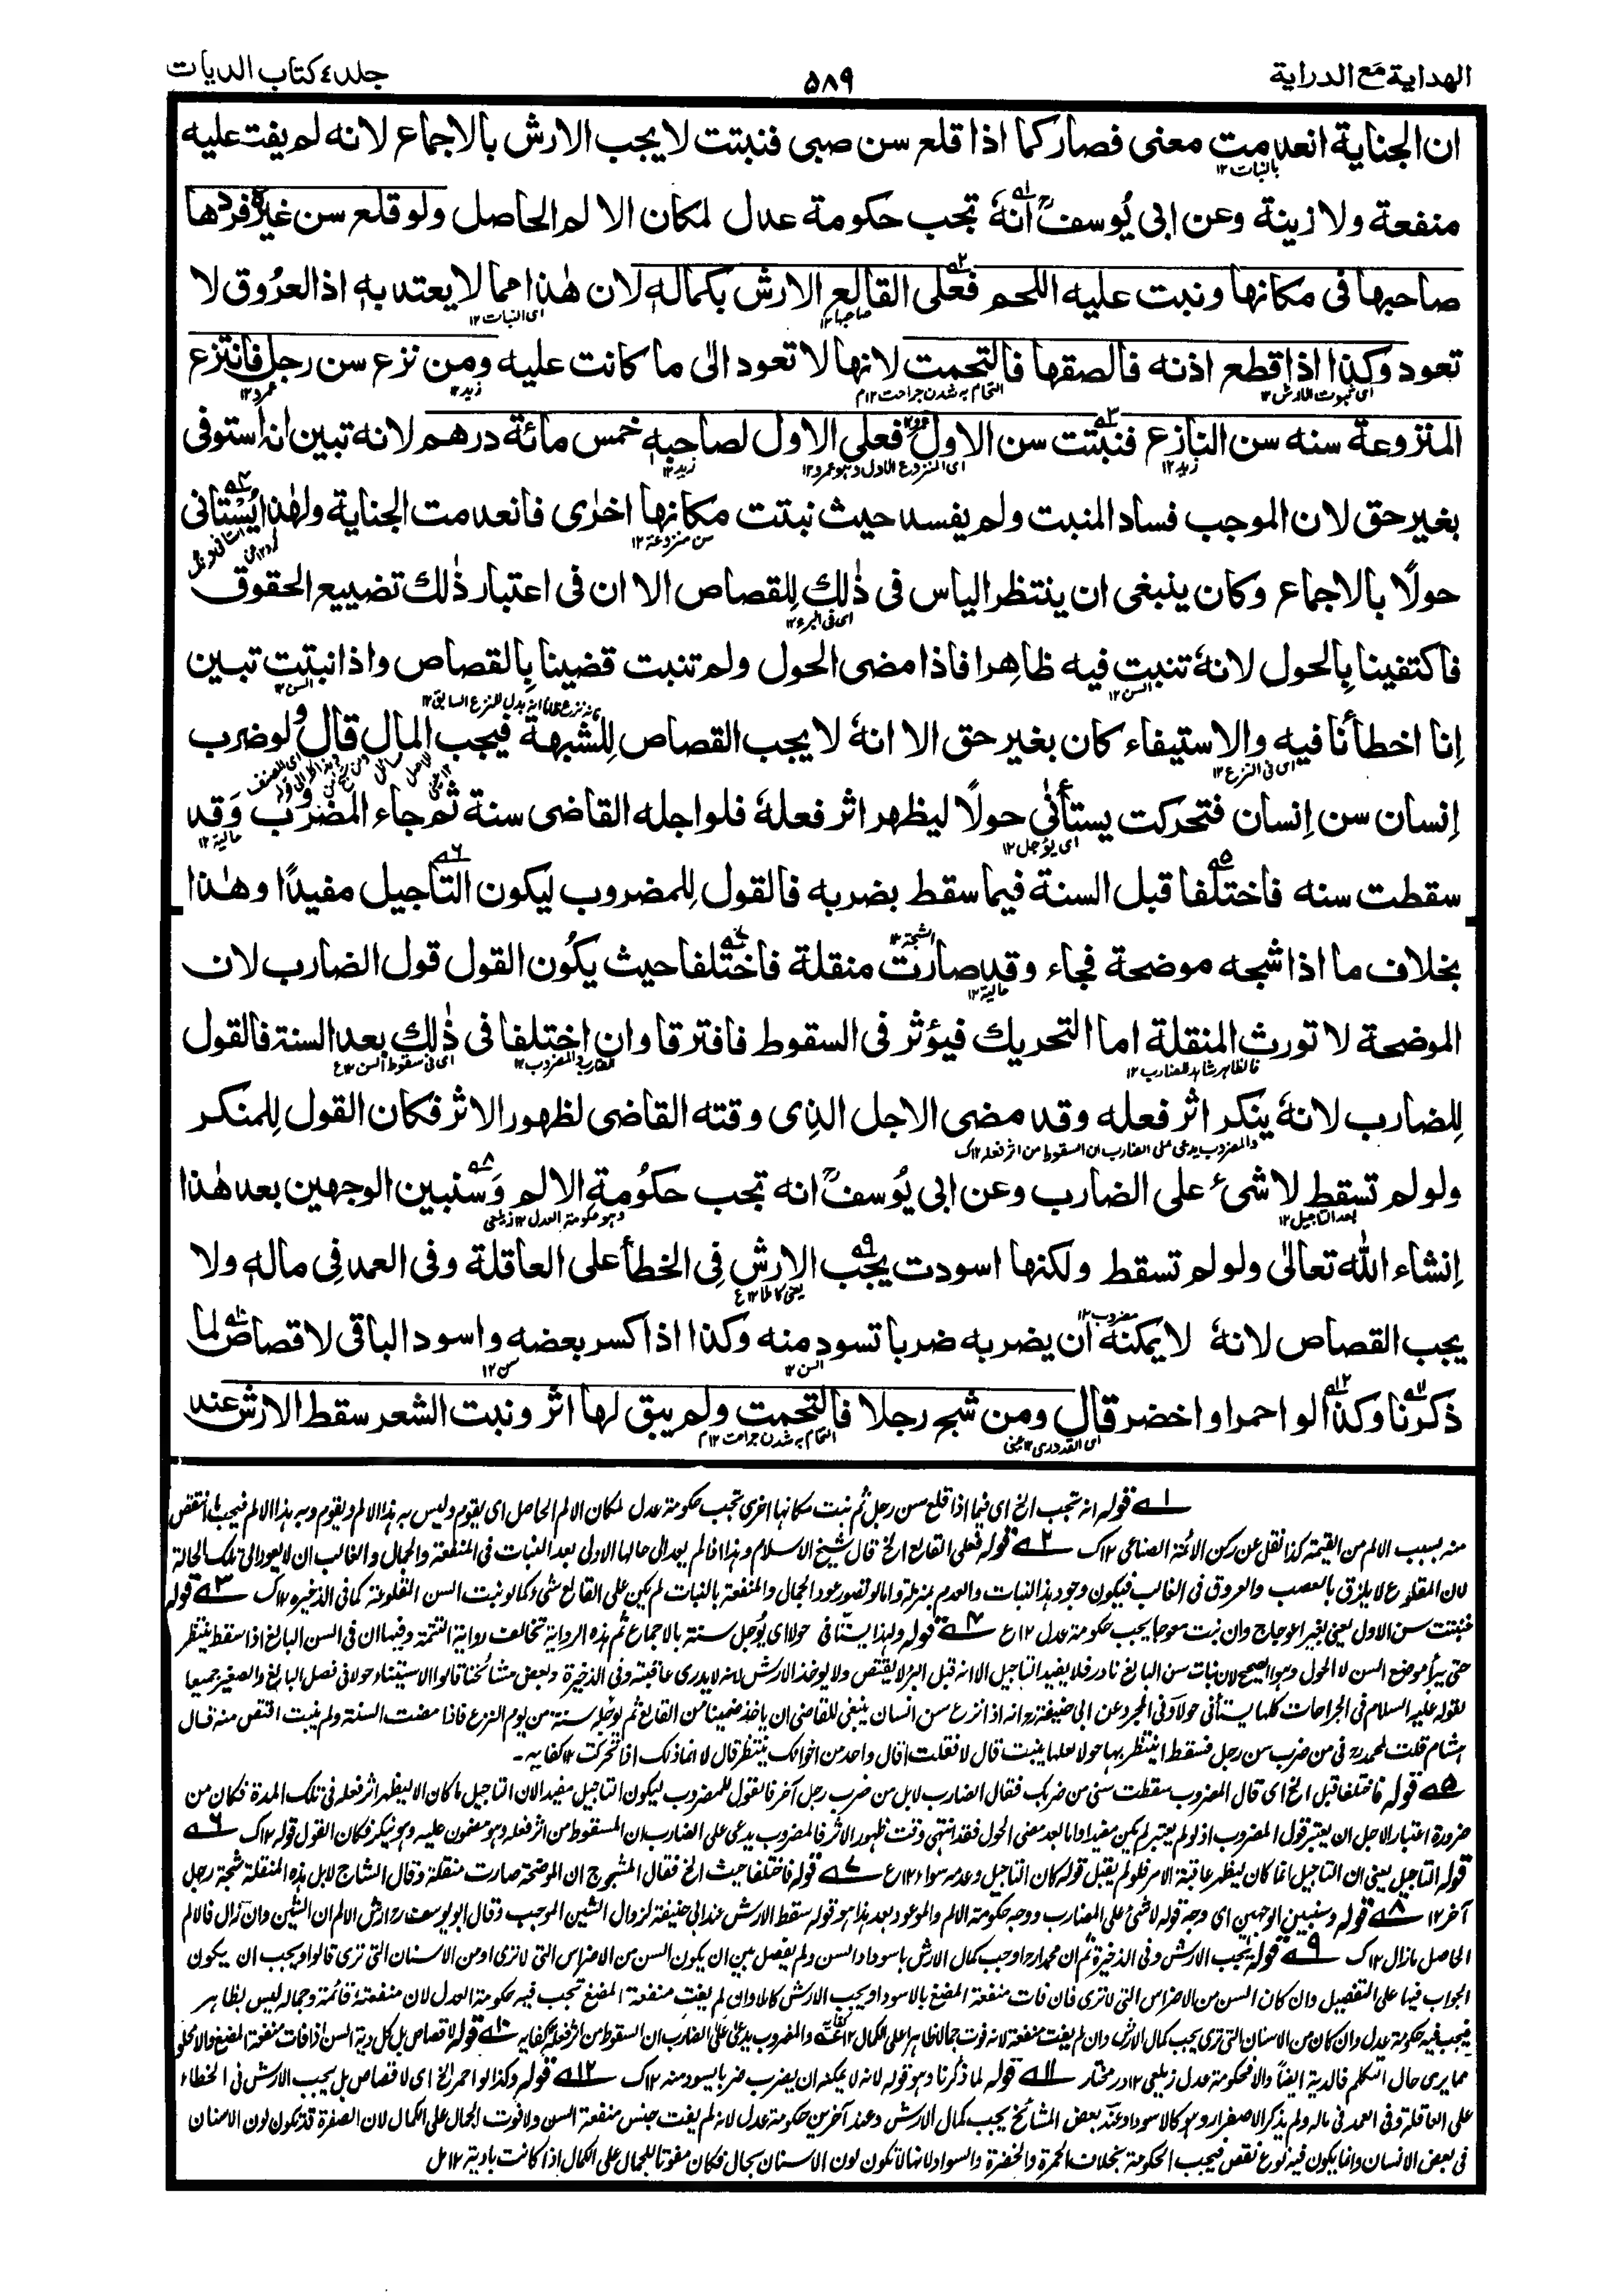 الهداية مع الدراية
۵۸۹
جلد ٤ كتاب الديات
ان الجناية انعدمت معنى فصار كما اذا قلع سن صبى فنبتت لا يجب الارش بالاجماع لانه لم يفت عليه
بالنبات ١٢
منفعة ولا زينة وعن ابى يُوسفؒ انهٗ تجب حكومة عدل لمكان الالم الحاصل ولو قلع سن غيره فردها
صاحبها فى مكانها ونبت عليه اللحم فعلى القالع الارش بكماله لان هٰذا مما لا يعتد به اذ العرُوق لا
صاحبها ١٢
اى النبات ١٢
تعود وكذا اذا قطع اذنه فالصقها فالتحمت لانها لا تعود الىٰ ما كانت عليه ومن نزع سن رجل فانتزع
اى ثبوت الارش ١٢
التحام به شدن جراحت ١٢م
زيد ١٢
عمرو ١٢
المنزوعة سنه سن النازع فنبتت سن الاول فعلى الاول لصاحبه خمس مائة درهم لانه تبين انه استوفى
زيد ١٢
اى المنزوع الاول وهو عمرو ١٢
زيد ١٢
بغير حق لان الموجب فساد المنبت ولم يفسد حيث نبتت مكانها اخرٰى فانعدمت الجناية ولهٰذا يُسْتانى
سن منزوعة ١٢
حولًا بالاجماع وكان ينبغى ان ينتظر الياس فى ذٰلك لِلقصاص الا ان فى اعتبار ذٰلك تضييع الحقوق
اى فى البرء ١٢
فاكتفينا بِالحول لانهٗ تنبت فيه ظاهِرا فاذا مضى الحول ولم تنبت قضينا بِالقصاص واذا نبتت تبين
السن ١٢
السن ١٢
اِنا اخطأنا فيه والاستيفاء كان بغير حق الا انهٗ لا يجب القصاص لِلشبهة فيجب المال قال ولو ضرب
اى فى النزع ١٢
اِنسان سن اِنسان فتحركت يستأنٰى حولًا ليظهر اثر فعلهٗ فلو اجله القاضى سنة ثم جاء المضروب وَقد
اى يؤجل ١٢
حالية ١٢
سقطت سنه فاختلفا قبل السنة فيما سقط بضربه فالقول لِلمضروب ليكون التاجيل مفيدًا وهٰذا
بخلاف ما اذا شجه موضحة فجاء وقد صارت منقلة فاختلفا حيث يكُون القول قول الضارب لان
الشجة ١٢
حالية ١٢
الموضحة لا تورث المنقلة اما التحريك فيؤثر فى السقوط فافترقا وان اختلفا فى ذٰلك بعد السنة فالقول
فالظاهر شاهد للضارب ١٢
الضارب والمضروب ١٢
اى فى سقوط السن ١٢ع
لِلضارب لانهٗ ينكر اثر فعله وقد مضى الاجل الذِى وقته القاضى لظهور الاثر فكان القول لِلمنكر
والمضروب يدعى على الضارب ان السقوط من اثر فعله ١٢ك
ولو لم تسقط لا شىء على الضارب وعن ابى يُوسفؒ انه تجب حكُومة الالم وَسنبين الوجهين بعد هٰذا
بعد التاجيل ١٢
وهو حكومة العدل ١٢ زيلعى
اِنشاء الله تعالىٰ ولو لم تسقط ولكنها اسودت يجب الارش فِى الخطأ على العاقلة وفى العمد فِى ماله ولا
يجب القصاص لانهٗ لا يمكنه ان يضربه ضربا تسود منه وكذا اذا كسر بعضه واسود الباقى لا قصاص لما
مضروب ١٢
السن ١٢
سن ١٢
ذكرنا وكذا لو احمر او اخضر قال ومن شج رجلا فالتحمت ولم يبق لها اثر ونبت الشعر سقط الارش عند
اى القدورى ١٢ عينى
التحام به شدن جراحت ١٢م
١ قوله انه تجب الخ اى فيما اذا قلع سن رجل ثم نبت مكانها اخرى تجب حكومة عدل لمكان الالم الحاصل اى يقوم وليس به هذا الالم ويقوم وبه هذا الالم فيجب ما انتقص
منه بسبب الالم من القيمة كذا نقل عن ركن الائمة الصباغى ١٢ك ٢ قوله فعلى القالع الخ قال شيخ الاسلام وهذا اذا لم يعد الى حالها الاولى بعد النبات فى المنفعة والجمال والغالب ان لا يعود الى تلك الحالة
لان المقلوع لا يلزق بالعصب والعروق فى الغالب فيكون وجود هذا النبات والعدم بمنزلة واما لو تصور عود الجمال والمنفعة بالنبات لم يكن على القالع شىء كما لو نبت السن المقلوعة كما فى الذخيره ١٢ك ٣ قوله
فنبتت سن الاول يعنى بغير اعوجاج وان نبت معوجا يجب حكومة عدل ١٢ع ٤ قوله ولهذا يستانى حولا اى يؤجل سنة بالاجماع ثم هذه الرواية تخالف رواية التتمة وفيها ان فى السن البالغ اذا سقط ينتظر
حتى يبرأ موضع السن لا الحول وهو الصحيح لان نبات سن البالغ نادر فلا يفيد التاجيل الا انه قبل البرء لا يقتص ولا يوخذ الارش لانه لا يدرى عاقبته وفى الذخيرة وبعض مشائخنا قالوا الاستيناء حولا فى فصل البالغ والصغير جميعا
لقوله عليه السلام فى الجراحات كلها يستأنى حولا وفى المجرد عن ابى حنيفةؒ انه اذا نزع سن انسان ينبغى للقاضى ان ياخذ ضمينا من القالع ثم يؤجله سنة من يوم النزع فاذا مضت السنة ولم ينبت اقتص منه قال
هشام قلت لمحمدؒ فى من ضرب سن رجل فسقط اينتظر بها حولا لعلها ينبت قال لا فقلت اقال واحد من اخوانك ينتظر قال لا انما ذلك اذا تحركت ١٢ كفايه۔
٥ قوله فاختلفا قبل الخ اى قال المضروب سقطت سنى من ضربك فقال الضارب لا بل من ضرب رجل آخر فالقول للمضروب ليكون التاجيل مفيدا لان التاجيل ما كان الا ليظهر اثر فعله فى تلك المدة فكان من
ضرورة اعتبار الاجل ان يعتبر قول المضروب اذ لو لم يعتبر لم يكن مفيدا واما بعد مضى الحول فقد انتهى وقت ظهور الاثر فالمضروب يدعى على الضارب ان السقوط من اثر فعله وهو مضمون عليه وهو ينكر فكان القول قوله ١٢ك ٦
قوله التاجيل يعنى ان التاجيل انما كان ليظهر عاقبة الامر فلو لم يقبل قوله كان التاجيل وعدمه سواء ١٢ع ٧ قوله فاختلفا حيث الخ فقال المشجوج ان الموضحة صارت منقلة وقال الشاج لا بل هذه المنقلة شجة رجل
آخر ١٢ ٨ قوله وسنبين الوجهين اى وجه قوله لا شىء على الضارب ووجه حكومة الالم والموعود بعد هذا هو قوله سقط الارش عند ابى حنيفة لزوال الشين الموجب وقال ابو يوسفؒ ارش الالم ان الشين وان زال فالالم
الحاصل ما زال ١٢ك ٩ قوله يجب الارش وفى الذخيرة ثم ان محمداؒ اوجب كمال الارش باسوداد السن ولم يفصل بين ان يكون السن من الاضراس التى لا ترى او من الاسنان التى ترى قالوا ويجب ان يكون
الجواب فيها على التفصيل وان كان السن من الاضراس التى لا ترى فان فات منفعة المضغ بالاسوداد يجب الارش كاملا وان لم يفت منفعة المضغ تجب فيه حكومة العدل لان منفعته قائمة وجماله ليس بظاهر
فيجب فيه حكومة عدل وان كان من الاسنان التى ترى يجب كمال الارش وان لم يفت منفعة لانه فوت جمالا ظاهرا على الكمال ١٢ والمضروب يدعى على الضارب ان السقوط من اثر فعله كفايه ١٠ قوله لا قصاص بل كل دية السن اذا فات منفعة المضغ والا فلو
مما يرى حال التكلم فالدية ايضاً والا فحكومة عدل زيلعى ١٢ در مختار ١١ قوله لما ذكرنا وهو قوله لانه لا يمكنه ان يضرب ضربا يسود منه ١٢ك ١٢ قوله وكذا لو احمر الخ اى لا قصاص بل يجب الارش فى الخطاء
على العاقلة وفى العمد فى ماله ولم يذكر الاصفرار وهو كالاسوداد وعند بعض المشائخ يجب كمال الارش وعند آخرين حكومة عدل لانه لم يفت جنس منفعة السن ولا فوت الجمال على الكمال لان الصفرة قد تكون لون الاسنان
فى بعض الانسان وانما يكون فيه نوع نقص فيجب الحكومة بخلاف الحمرة والخضرة والسواد لانها لا تكون لون الاسنان بحال فكان مفوتا للجمال على الكمال اذا كانت بادية ١٢ مل